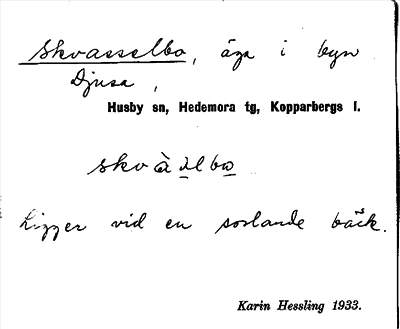 Skvasselbo, äga i byn
Djusa,
Husby sn, Hedemora tg, Kopparbergs l.
skvà lbo
Ligger vid en sorlande bäck.
Karin Hessling 1933.